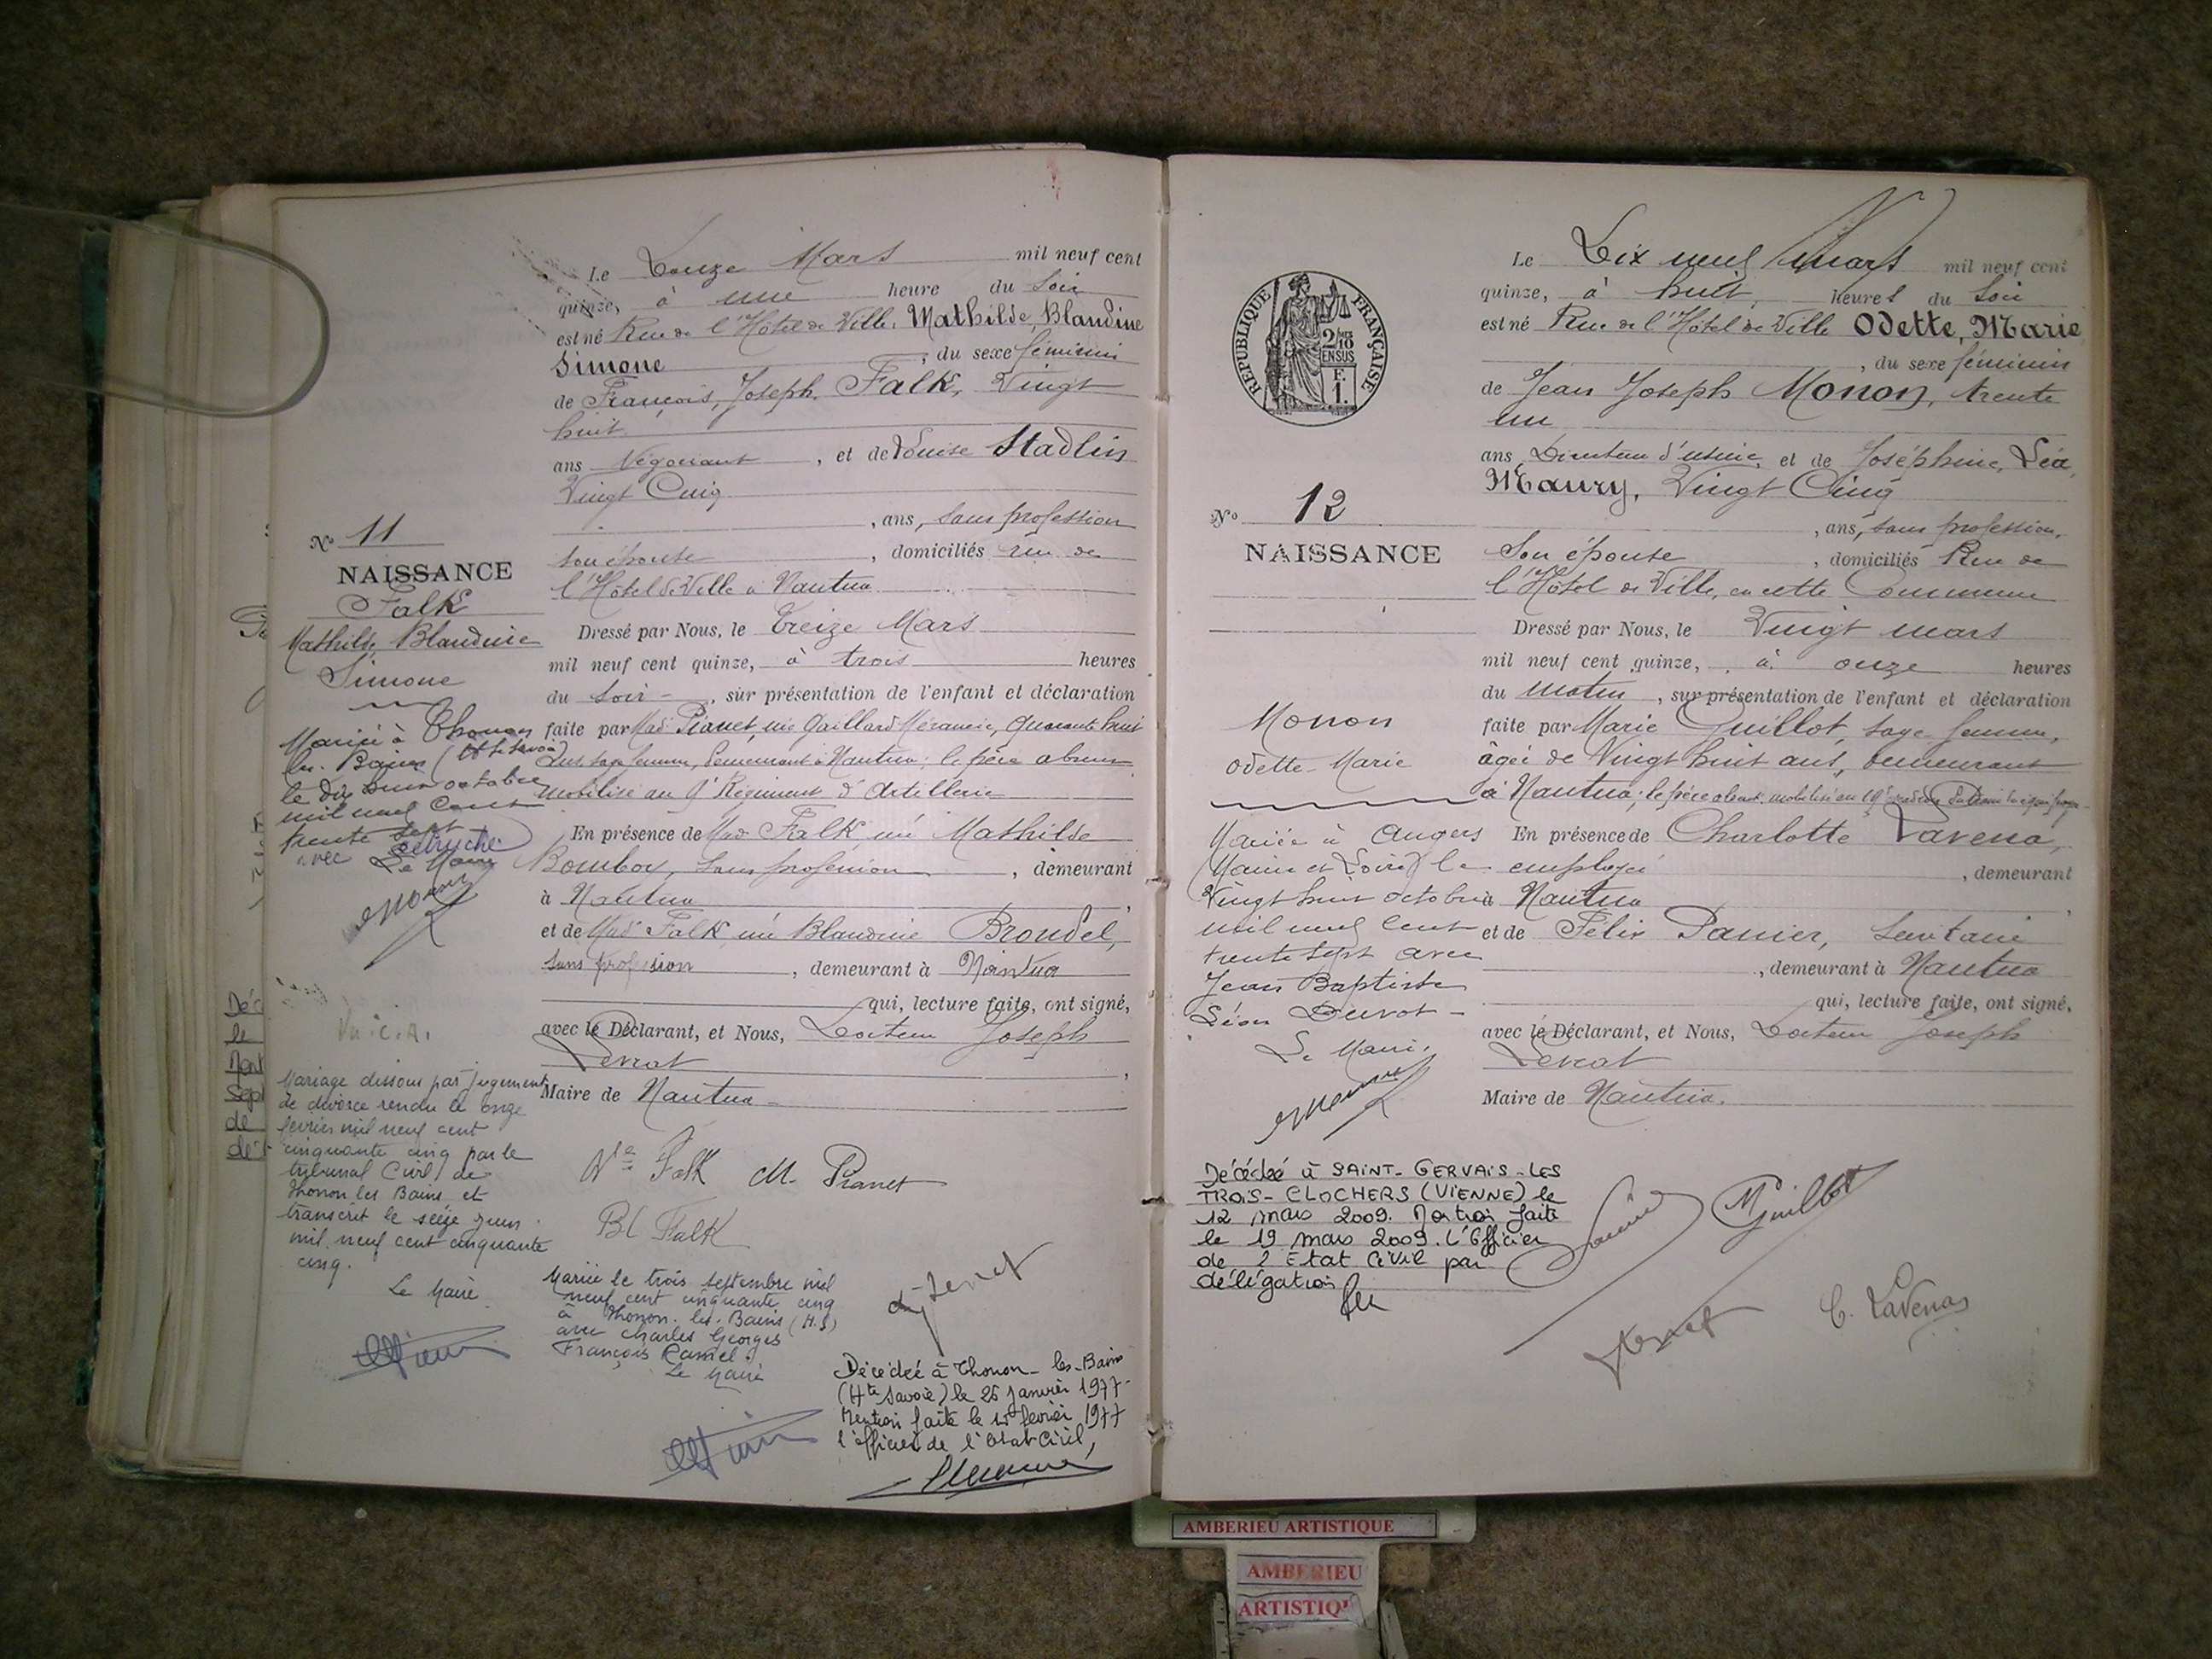 Le Douze Mars mil neuf cent
quinze, à une heure du Soir
est né Rue de l'Hôtel de Ville, Mathilde, Blandine
Simone, du sexe féminin
de François, Joseph, Falk, Vingt
huit
ans Négociant, et de Louise Stadlin
Vingt Cinq
, ans, sans profession
son épouse, domiciliés rue de
l'Hôtel de Ville à Nantua
Dressé par Nous, le Treize Mars
mil neuf cent quinze, à trois heures
du Soir, sur présentation de l'enfant et déclaration
faite par Mad. Pianet, née Gaillard, quarante huit
ans sage femme, demeurant à Nantua; le père absent
mobilisé au Régiment d'Artillerie
En présence de Mad. Falk née Mathilde
sans profession, demeurant
à Nantua
et de Mad. Falk née Blandine Broudel,
sans profession, demeurant à Nantua
qui, lecture faite, ont signé,
avec le Déclarant, et Nous, Docteur Joseph
Levrat
Maire de Nantua
Nº 11
NAISSANCE
Falk
Mathilde, Blandine
Simone
Mariée à Thonon
les-Bains (Hte Savoie)
le octobre
mil neuf cent
trente sept
avec
Le Maire
Vu C.A.
Mariage dissous par jugement
de divorce rendu le onze
février mil neuf cent
cinquante cinq par le
tribunal Civil de
Thonon les Bains et
transcrit le seize juin
mil neuf cent cinquante
cinq.
Le Maire
Vve Falk M. Pianet
Bl Falk
Mariée le trois septembre mil
neuf cent cinquante cinq
à Thonon-les-Bains (H.S)
avec Charles Georges
François Ramel.
Le Maire
Décédée à Thonon-les-Bains
(Hte Savoie) le 26 janvier 1977
Mention faite le février 1977
l'officier de l'Etat Civil,
RÉPUBLIQUE FRANÇAISE
2/10
EN SUS
F.
1.
Le Dix neuf Mars mil neuf cent
quinze, à huit, heures du Soir
est né Rue de l'Hôtel de Ville Odette, Marie
, du sexe féminin
de Jean Joseph Monon, trente
un
ans Directeur d'usine, et de Joséphine, Léa,
Maury, Vingt Cinq
, ans, sans profession,
Son épouse, domiciliés Rue de
l'Hôtel de Ville, en cette Commune
Dressé par Nous, le Vingt mars
mil neuf cent quinze, à onze heures
du matin, sur présentation de l'enfant et déclaration
faite par Marie Guillot, sage femme,
âgée de Vingt huit ans, demeurant
à Nantua; le père absent, mobilisé au
En présence de Charlotte Lavena,
employée, demeurant
à Nantua
et de Félix Panier, Secrétaire
, demeurant à Nantua
qui, lecture faite, ont signé,
avec le Déclarant, et Nous, Docteur Joseph
Levrat
Maire de Nantua.
Nº 12
NAISSANCE
Monon
Odette-Marie
Mariée à Angers
(Maine et Loire) le
Vingt huit octobre
mil neuf cent
trente sept avec
Jean Baptiste
Léon Duvot
Le Maire.
Décédée à SAINT-GERVAIS-LES
TROIS-CLOCHERS (VIENNE) le
12 mars 2009. Mention faite
le 19 mars 2009. L'Officier
de l'Etat Civil par
délégation
M Guillot
C. Lavena
AMBERIEU ARTISTIQUE
AMBERIEU
ARTISTIQ